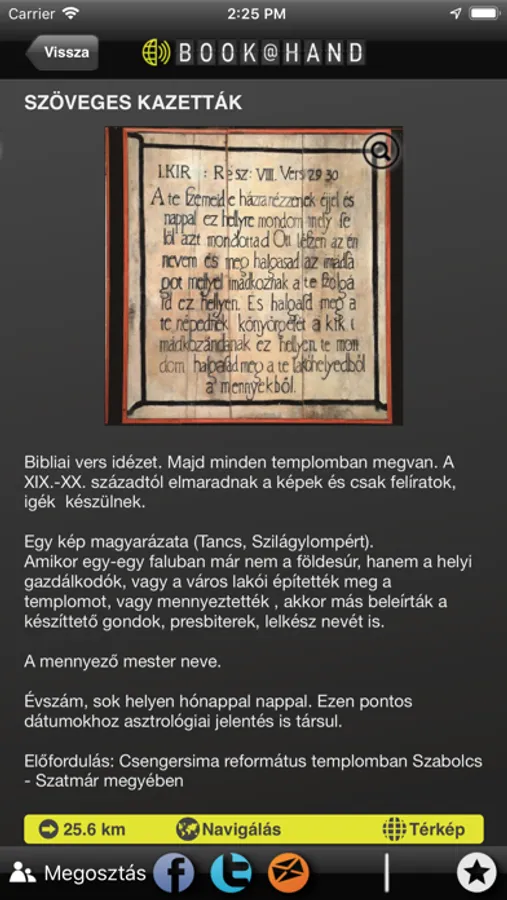 Carrier 2:25 PM
Vissza BOOK@HAND
SZÖVEGES KAZETTÁK
I.KIR : Rész: VIII. Vers 29 30
A te szemeid e házra nézzenek éjel és
nappal ez hellyre mondom mely fe
löl azt mondottad Ott lészen az én
nevem és meg halgasad az imádsá
got mellyel imádkoznak a te szolgá
id ez helyen. És halgasd meg a
te népednek könyörgését a kik i
mádkozándanak ez helyen, te mon
dom halgasd meg a te lakóhelyedből
a mennyekből.
Bibliai vers idézet. Majd minden templomban megvan. A
XIX.-XX. századtól elmaradnak a képek és csak felíratok,
igék készülnek.
Egy kép magyarázata (Tancs, Szilágylompért).
Amikor egy-egy faluban már nem a földesúr, hanem a helyi
gazdálkodók, vagy a város lakói építették meg a
templomot, vagy mennyeztették , akkor más beleírták a
készíttető gondok, presbiterek, lelkész nevét is.
A mennyező mester neve.
Évszám, sok helyen hónappal nappal. Ezen pontos
dátumokhoz asztrológiai jelentés is társul.
Előfordulás: Csengersima református templomban Szabolcs
- Szatmár megyében
25.6 km Navigálás Térkép
Megosztás